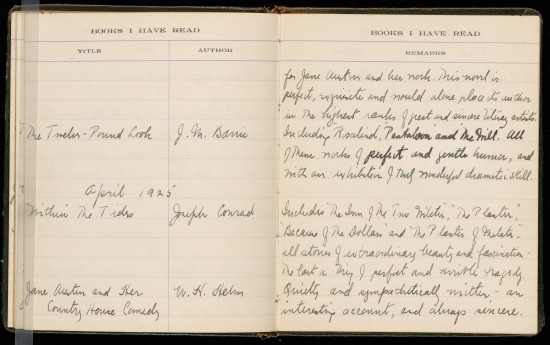 BOOKS I HAVE READ
TITLE
AUTHOR
The Twelve-Pound Look
J. M. Barrie
April 1925
Within The Tides
Joseph Conrad
Jane Austen and Her
Country House Comedy
W. H. Helm
BOOKS I HAVE READ
REMARKS
for Jane Austen and her work. This novel is
perfect, exquisite and would alone place its author
in the highest ranks of great and sincere literary artists.
Including Rosalind, Pantaloon and The Will. All
of them works of perfect and gentle humor, and
with an exhibition of truly wonderful dramatic skill.
Includes "The Inn of the Two Witches," "The Planter,"
"Because of the Dollars" and "The Planter of Malata",
all stories of extraordinary beauty and fascination.
The last a thing of perfect and terrible tragedy.
Quietly and sympathetically written - an
interesting account, and always sincere.